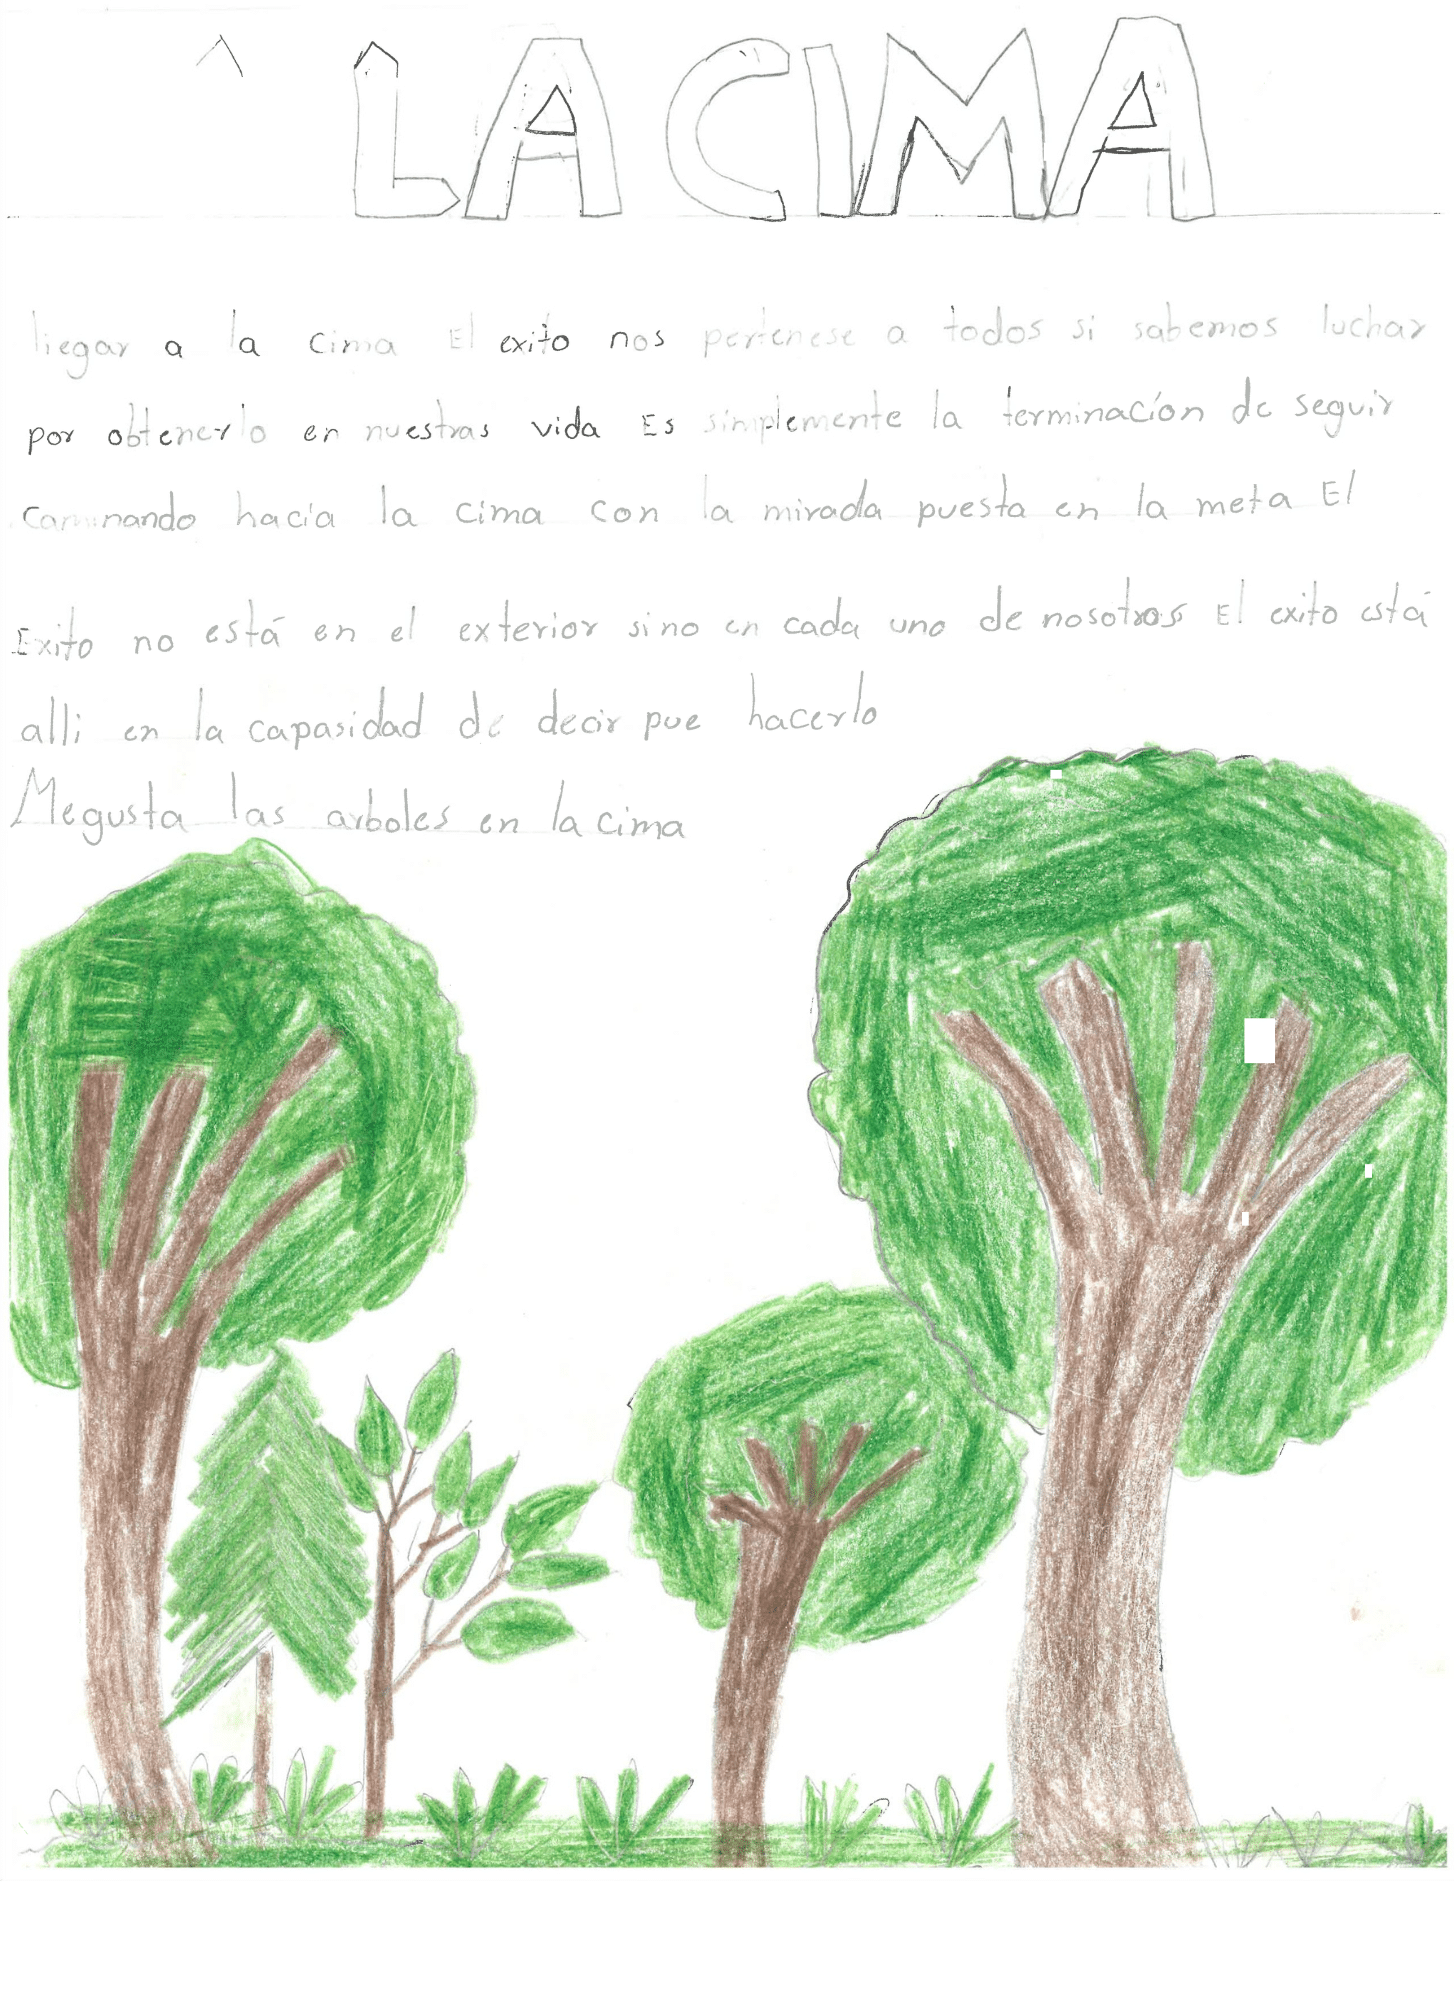 LA CIMA
llegar a la cima El exito nos pertenese a todos si sabemos luchar
por obtenerlo en nuestras vida Es simplemente la terminación de seguir
caminando hacia la cima con la mirada puesta en la meta El
Exito no está en el exterior sino en cada uno de nosotros El exito está
alli en la capasidad de decir pue hacerlo
Megusta las arboles en la cima